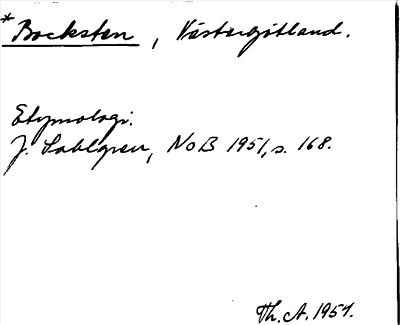 *Bocksten, Västergötland.
Etymologi.
J. Sahlgren, NoB 1951, s. 168.
Th. A. 1951.